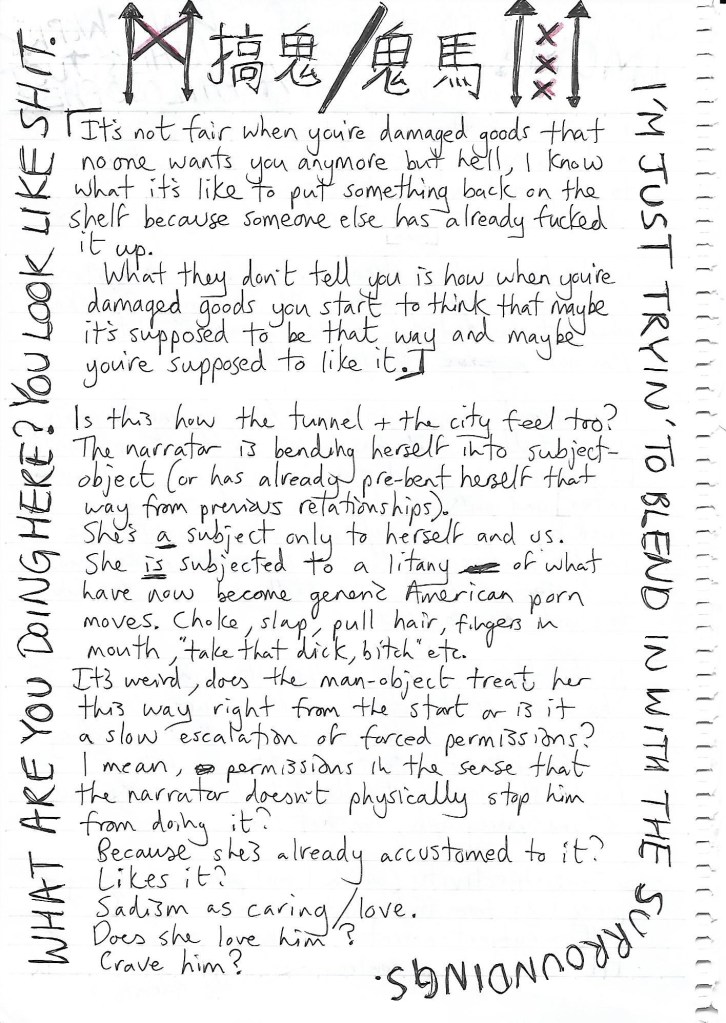 搞鬼/鬼馬
xxx
WHAT ARE YOU DOING HERE? YOU LOOK LIKE SHIT.
「It's not fair when you're damaged goods that
no one wants you anymore but hell, I know
what it's like to put something back on the
shelf because someone else has already fucked
it up.
What they don't tell you is how when you're
damaged goods you start to think that maybe
it's supposed to be that way and maybe
you're supposed to like it.」
Is this how the tunnel + the city feel too?
The narrator is bending herself into subject-
object (or has already pre-bent herself that
way from previous relationships).
She's a subject only to herself and us.
She is subjected to a litany of what
have now become generic American porn
moves. Choke, slap, pull hair, fingers in
mouth, "take that dick, bitch" etc.
It's weird, does the man-object treat her
this way right from the start or is it
a slow escalation of forced permissions?
I mean, permissions in the sense that
the narrator doesn't physically stop him
from doing it?
Because she's already accustomed to it?
Likes it?
Sadism as caring/love.
Does she love him?
Crave him?
I'M JUST TRYIN' TO BLEND IN WITH THE SURROUNDINGS.